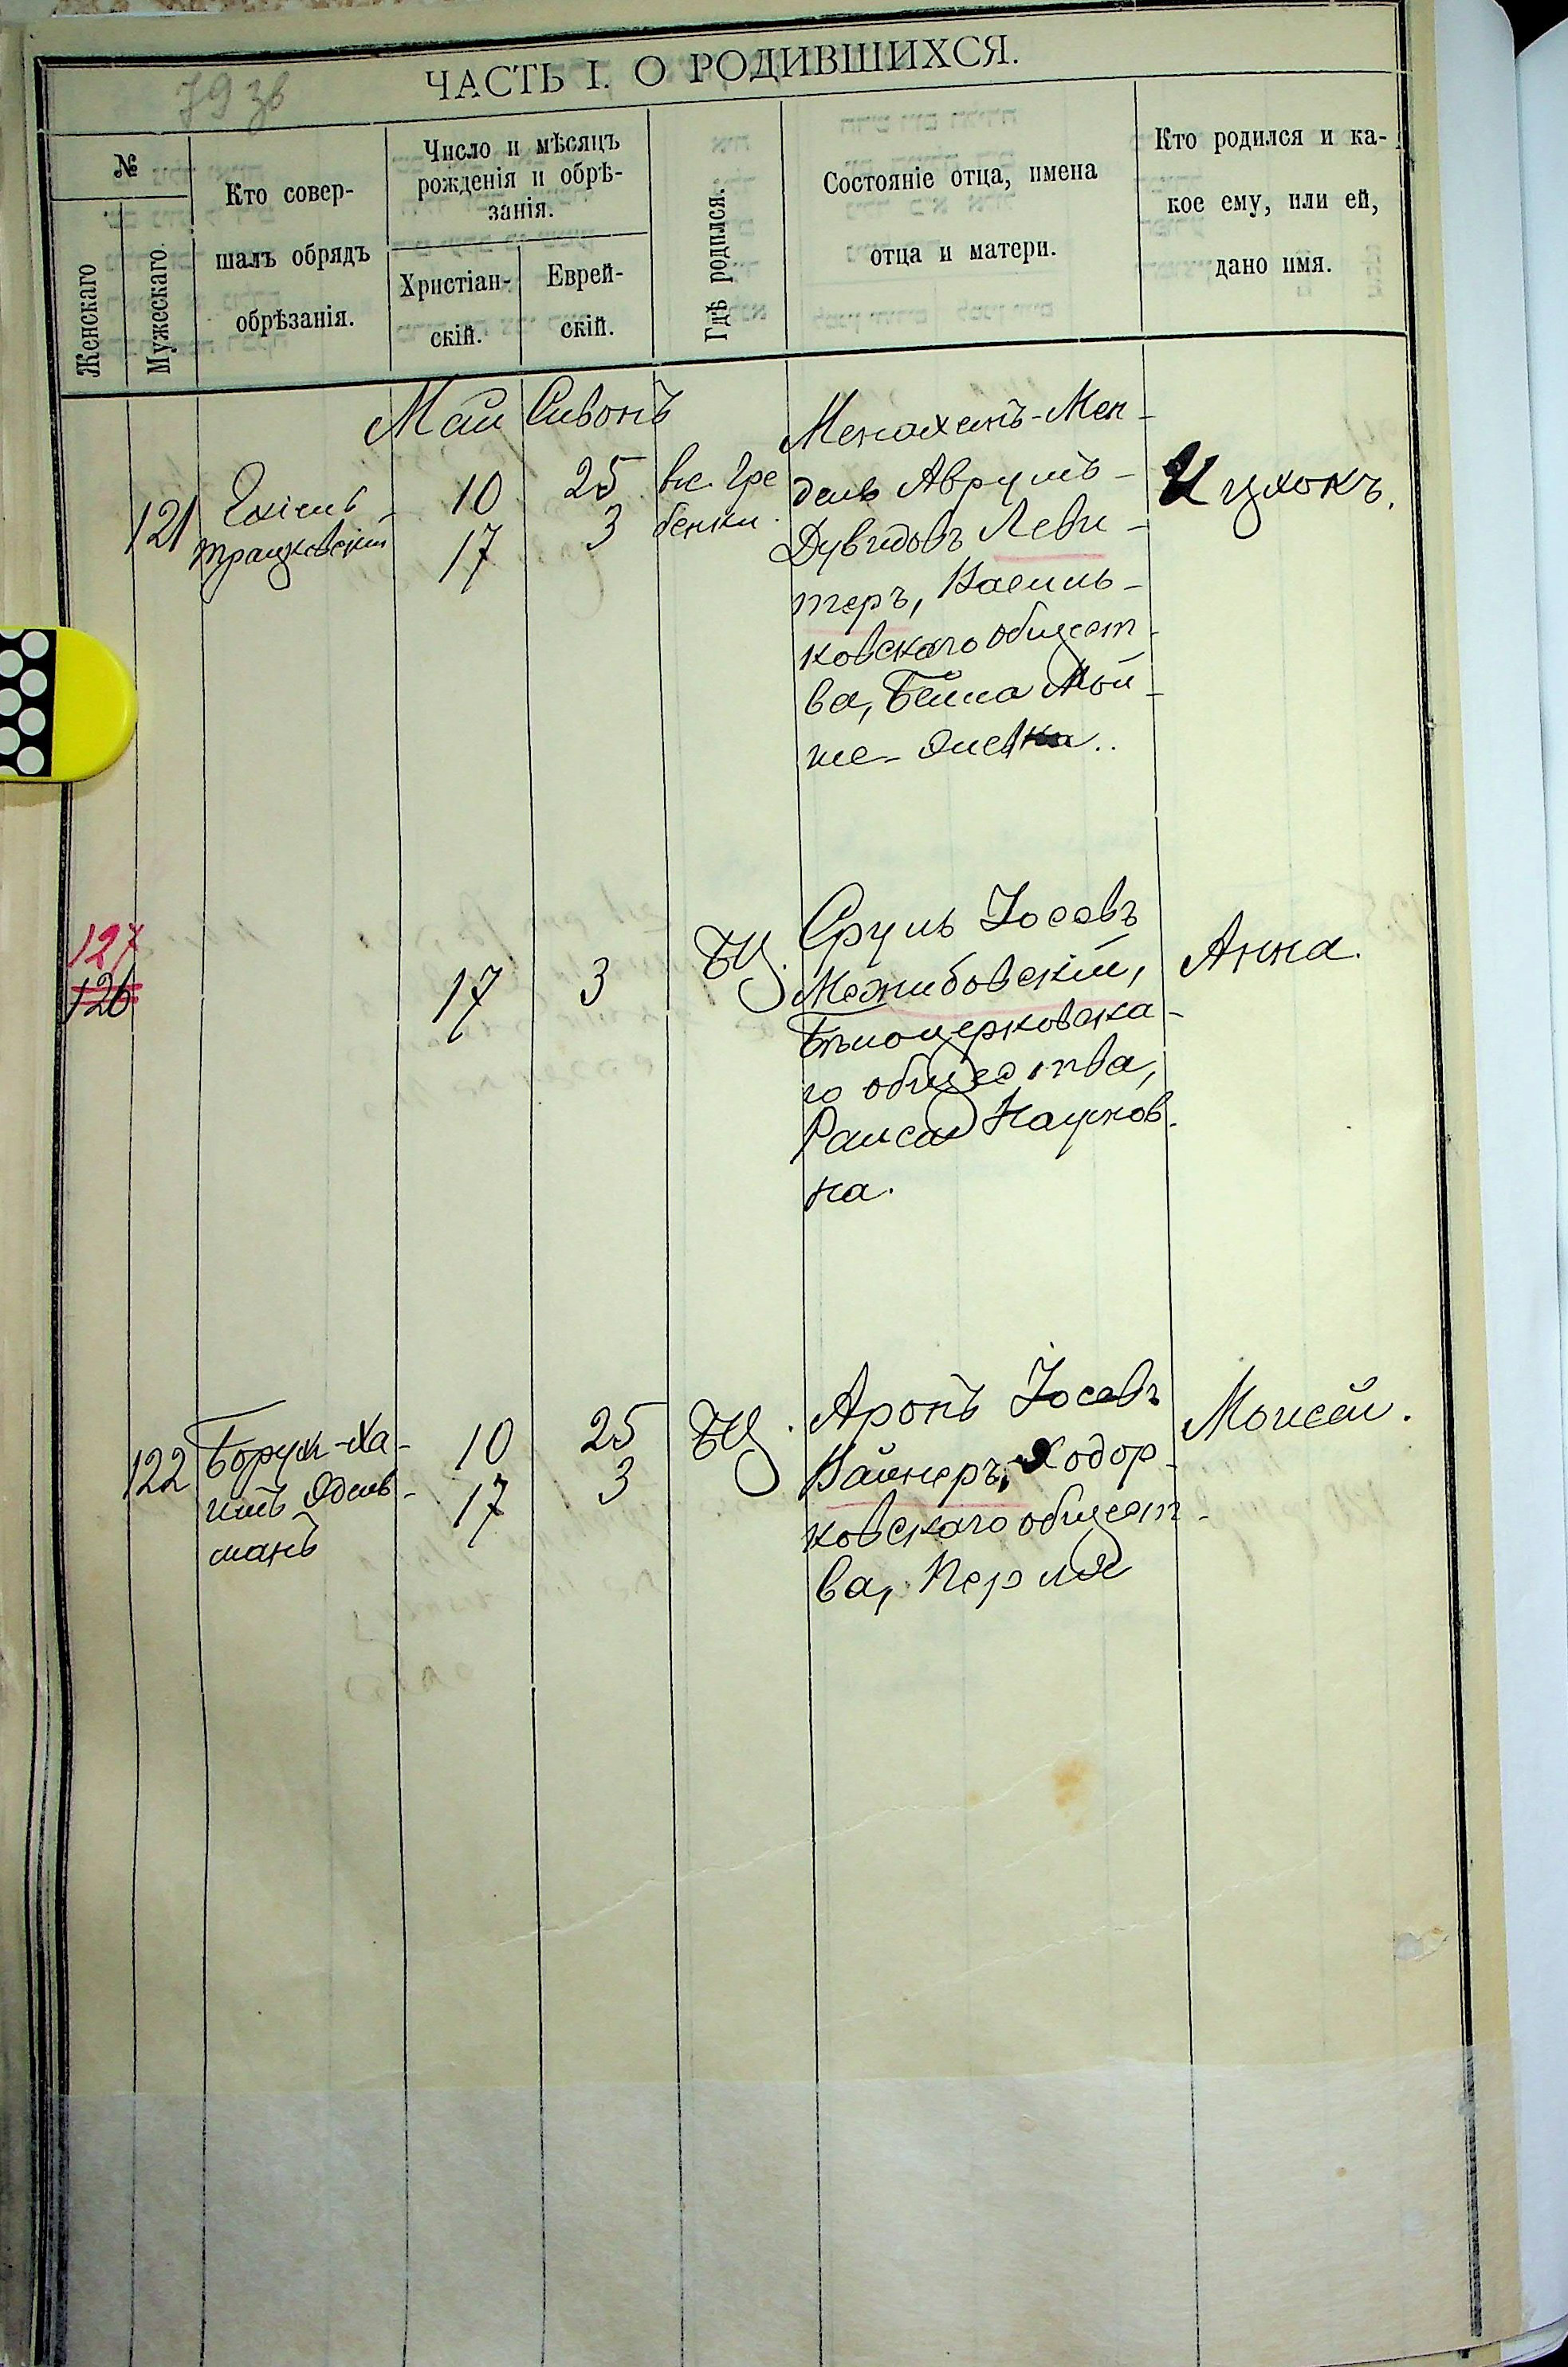 79 зв
ЧАСТЬ I. О РОДИВШИХСЯ.
№
Женскаго
Мужескаго.
Кто совер-
шалъ обрядъ
обрѣзанія.
Число и мѣсяцъ
рожденія и обрѣ-
занія.
Христіан-
скій.
Еврей-
скій.
Гдѣ родился.
Состояніе отца, имена
отца и матери.
Кто родился и ка-
кое ему, или ей,
дано имя.
Май Сивонъ
121
Ехіель
Трацковскій
10
17
25
3
вс. Гре
бенки.
Менахемъ-Мен-
дель Аврумъ-
Дувидовъ Леви-
теръ, Василь-
ковскаго общест-
ва, Бейла Мой-
ше-
Ицхокъ.
127
126
17
3
БЦ.
Сруль Іосевъ
Межибовскій,
Бѣлоцерковска-
го общества,
Раиса Наумов-
на.
Анна.
122
Борух-Ха-
имъ Эдель-
манъ
10
17
25
3
БЦ.
Аронъ Іосевъ
Вайнеръ, Ходор-
ковскаго общест-
ва, Перля
Моисей.